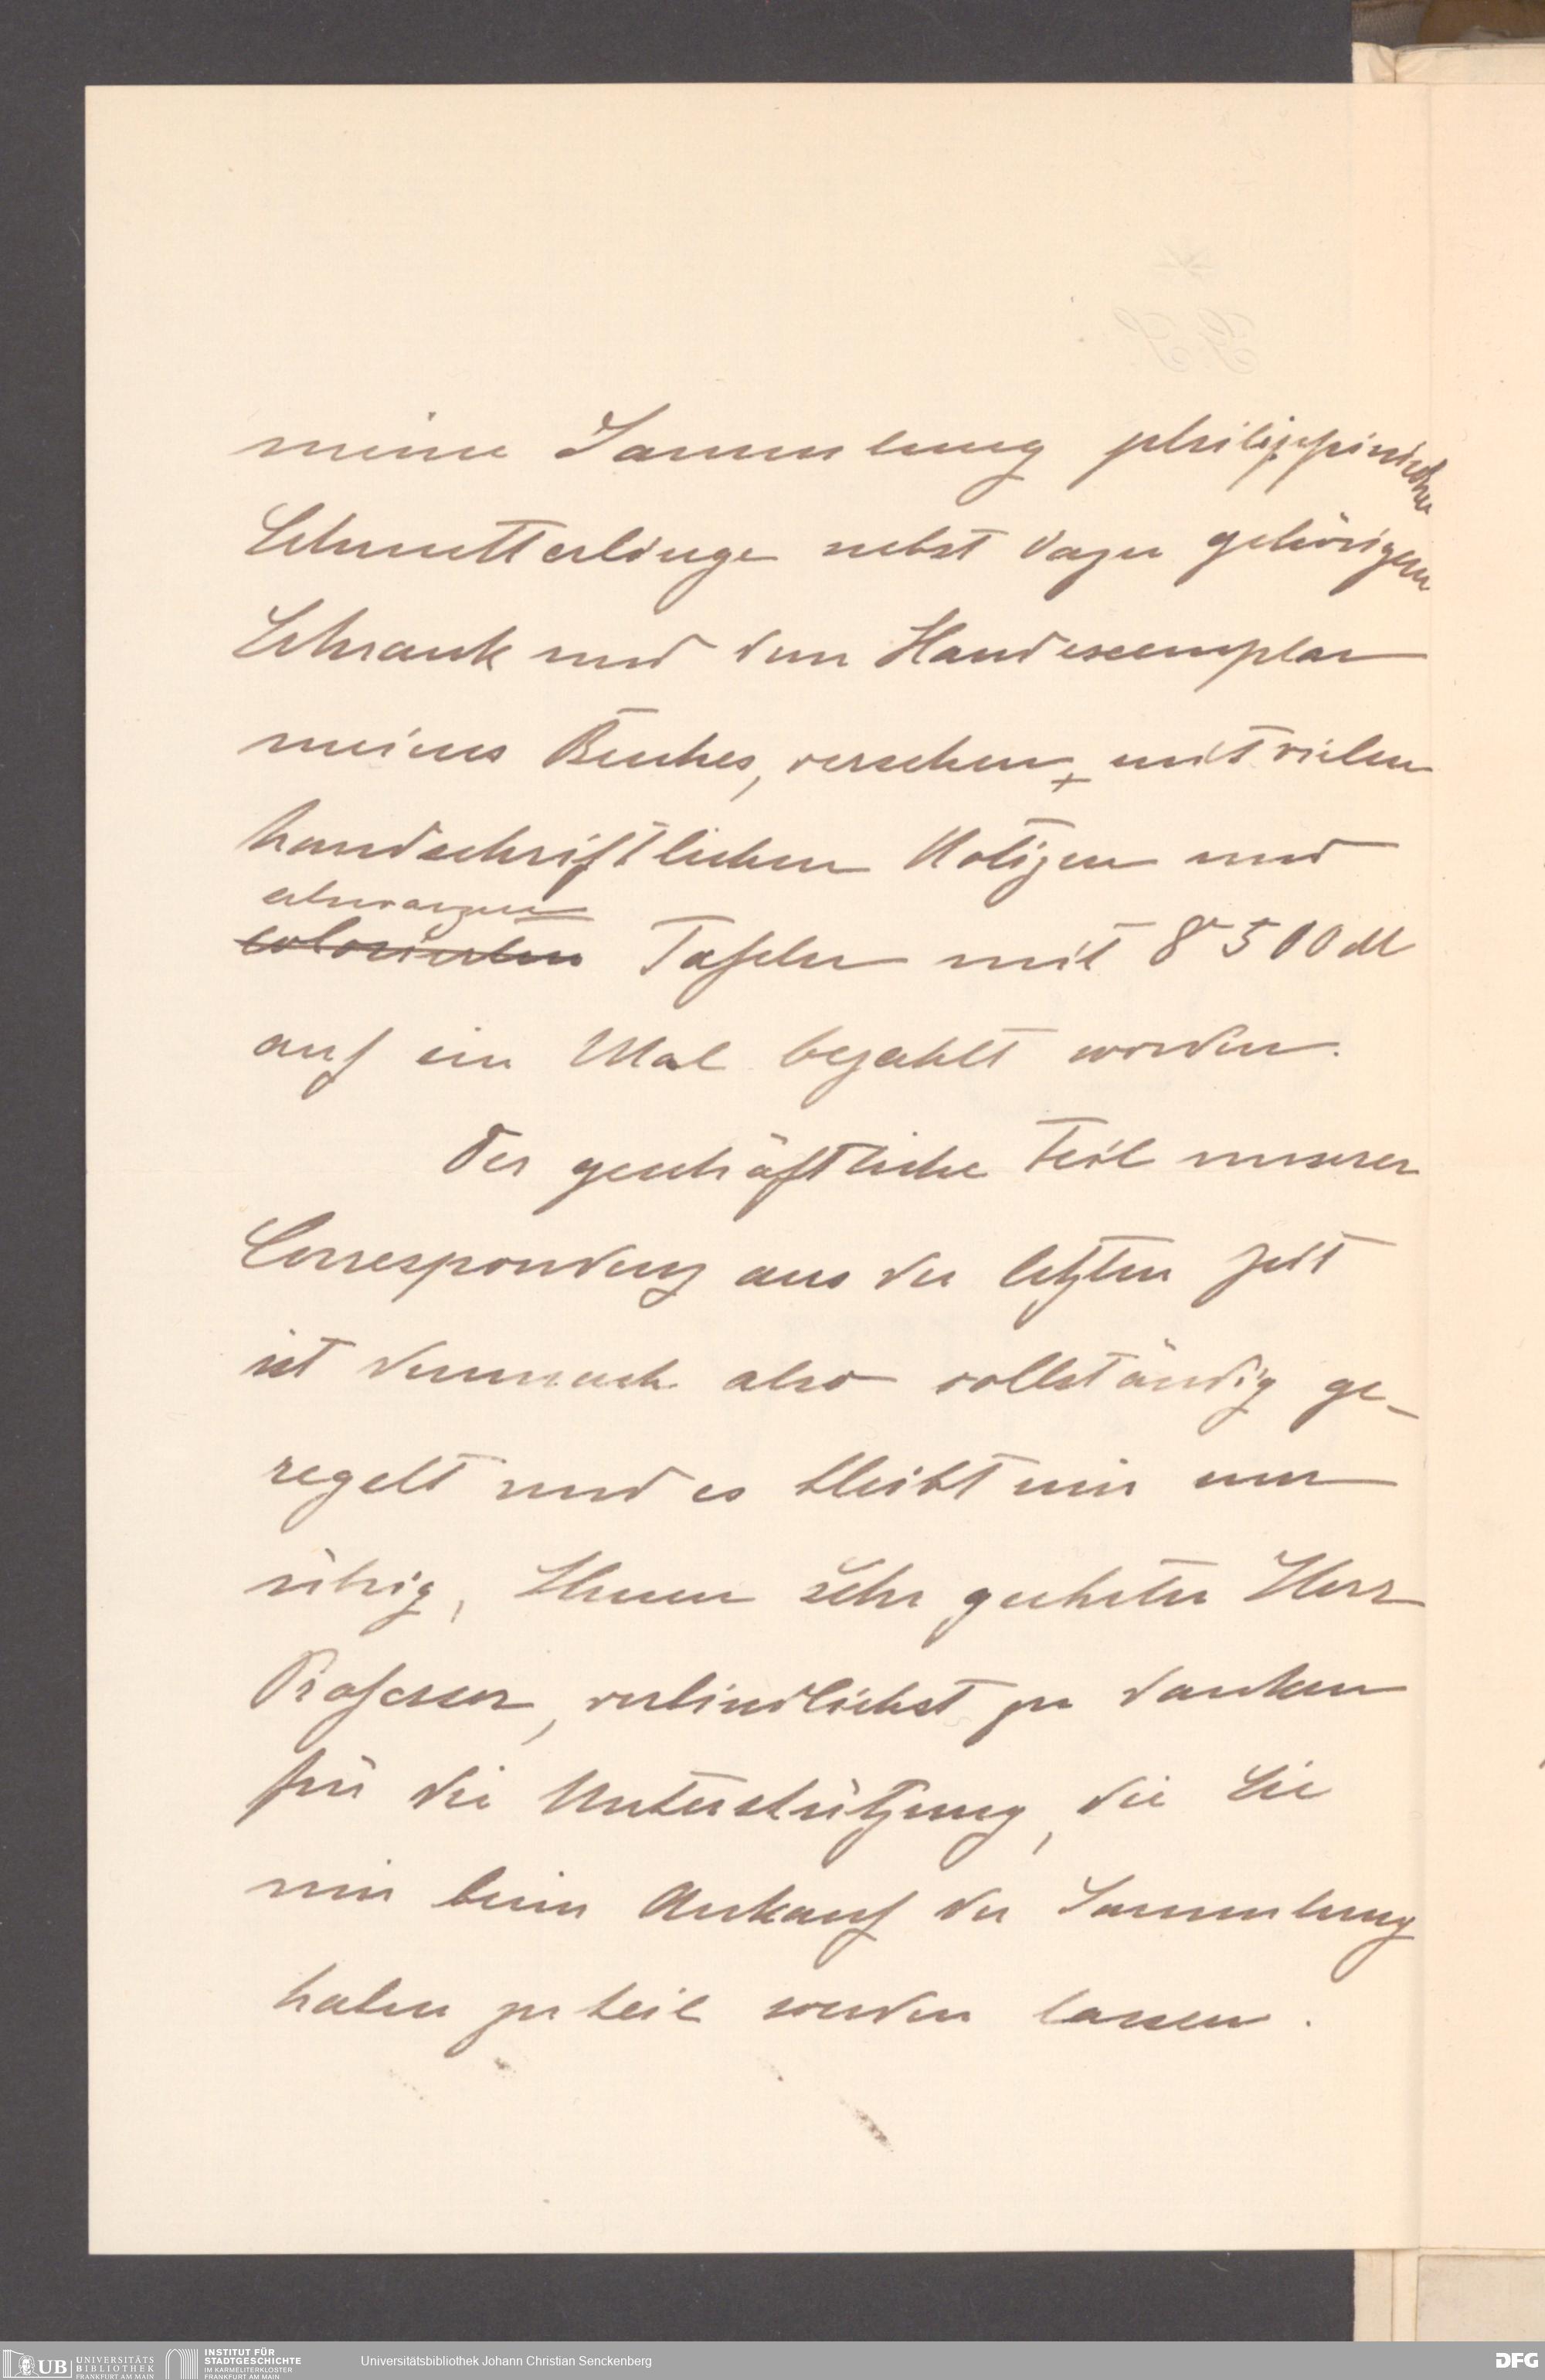 meine Sammlung philippinischer
Schmetterlinge nebst dazu gehörigem
Schrank und dem Handexemplar
meines Buches, versehen mit vielen
handschriftlichen Notizen und
schwarzen
colorierten Tafeln mit 8500 M
auf ein Mal bezahlt worden.
Der geschäftliche Teil unserer
Correspondenz aus der letzten Zeit
ist demnach also vollständig ge-
regelt und es bleibt mir nur
übrig, Ihnen sehr geehrter Herr
Professor, verbindlichst zu danken
für die Unterstützung, die Sie
mir beim Ankauf der Sammlung
haben zu teil werden lassen.
UB UNIVERSITÄTS
BIBLIOTHEK
FRANKFURT AM MAIN
INSTITUT FÜR
STADTGESCHICHTE
IM KARMELITERKLOSTER
FRANKFURT AM MAIN
Universitätsbibliothek Johann Christian Senckenberg
DFG